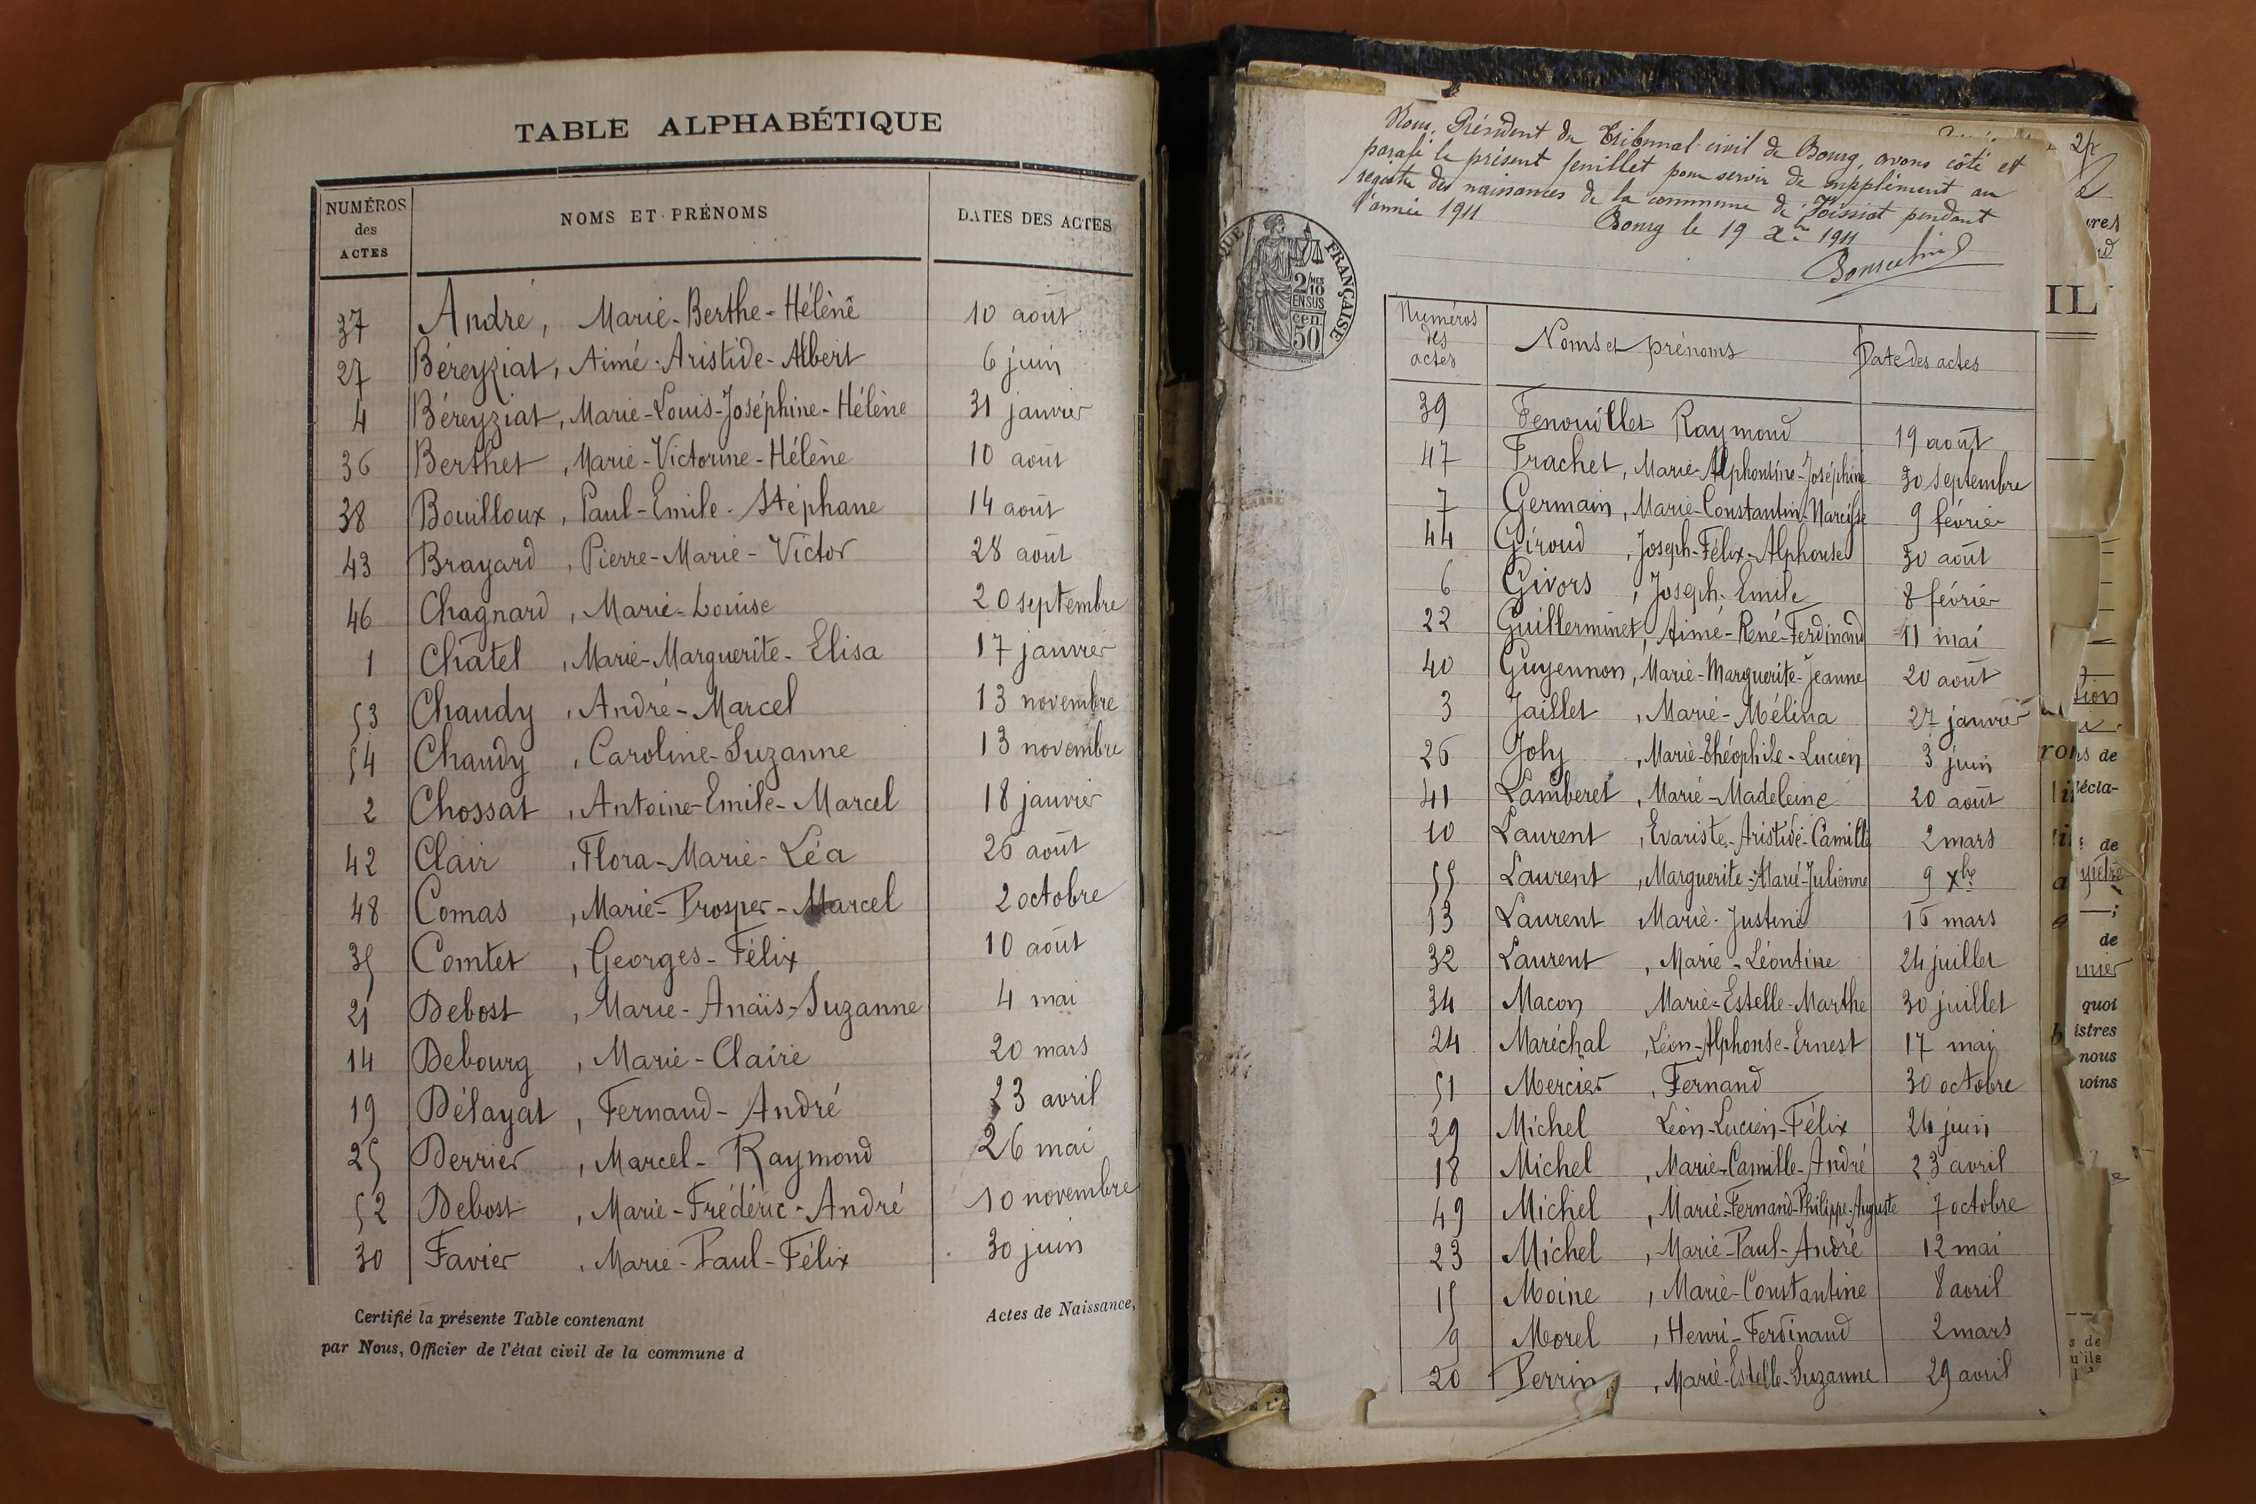 TABLE ALPHABÉTIQUE
NUMÉROS des ACTES NOMS ET PRÉNOMS DATES DES ACTES
37 André, Marie-Berthe-Hélène 10 août
27 Béreyziat, Aimé-Aristide-Albert 6 juin
4 Béreyziat, Marie-Louis-Joséphine-Hélène 31 janvier
36 Berthet, Marie-Victorine-Hélène 10 août
38 Bouilloux, Paul-Emile-Stéphane 14 août
43 Brayard, Pierre-Marie-Victor 28 août
46 Chagnard, Marie-Louise 20 septembre
1 Châtel, Marie-Marguerite-Elisa 17 janvier
53 Chaudy, André-Marcel 13 novembre
54 Chaudy, Caroline-Suzanne 13 novembre
2 Chossat, Antoine-Emile-Marcel 18 janvier
42 Clair, Flora-Marie-Léa 26 août
48 Comas, Marie-Prosper-Marcel 2 octobre
35 Comtet, Georges-Félix 10 août
21 Debost, Marie-Anaïs-Suzanne 4 mai
14 Debourg, Marie-Claire 20 mars
19 Délayat, Fernand-André 23 avril
25 Derrier, Marcel-Raymond 26 mai
52 Debost, Marie-Frédéric-André 10 novembre
30 Favier, Marie-Paul-Félix 30 juin
Certifié la présente Table contenant Actes de Naissance,
par Nous, Officier de l'état civil de la commune d
Nous, Président du Tribunal civil de Bourg, avons côté et
parafé le présent feuillet pour servir de supplément au
registre des naissances de la commune de Foissiat pendant
l'année 1911
Bourg le 19 Xbre 1911
FRANÇAISE
2/10 EN SUS
50 cen
Numéros des actes Noms et prénoms Date des actes
39 Fenouillet Raymond 19 août
47 Frachet, Marie-Alphontine-Joséphine 30 septembre
7 Germain, Marie-Constantin-Narcisse 9 février
44 Giroud, Joseph-Félix-Alphonse 30 août
6 Givors, Joseph-Emile 8 février
22 Guillerminet, Aimé-René-Ferdinand 11 mai
40 Guyennon, Marie-Marguerite-Jeanne 20 août
3 Jaillet, Marie-Mélina 27 janvier
26 Joly, Marie-Théophile-Lucien 3 juin
41 Lamberet, Marie-Madeleine 20 août
10 Laurent, Evariste-Aristide-Camille 2 mars
55 Laurent, Marguerite-Marie-Julienne 9 Xbre
13 Laurent Marie-Justine 16 mars
32 Laurent, Marie-Léontine 24 juillet
34 Macon Marie-Estelle-Marthe 30 juillet
24 Maréchal, Léon-Alphonse-Ernest 17 mai
51 Mercier, Fernand 30 octobre
29 Michel Léon-Lucien-Félix 24 juin
18 Michel, Marie-Camille-André 23 avril
49 Michel, Marie-Fernand-Philippe-Auguste 7 octobre
23 Michel, Marie-Paul-André 12 mai
15 Moine, Marie-Constantine 8 avril
9 Morel, Henri-Ferdinand 2 mars
20 Perrin, Marie-Estelle-Suzanne 29 avril